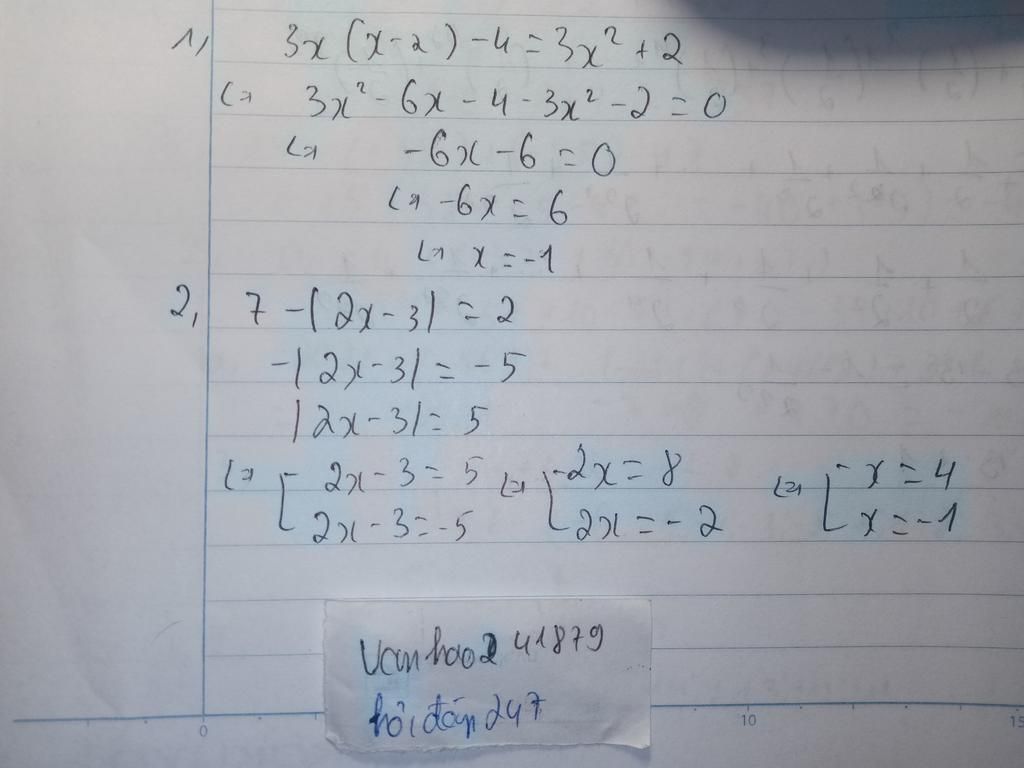 1, 3x(x-2)-4=3x²+2
<=> 3x²-6x-4-3x²-2=0
<=> -6x-6=0
<=> -6x=6
<=> x=-1
2, 7-|2x-3|=2
-|2x-3|=-5
|2x-3|=5
<=> [ 2x-3=5 <=> [ 2x=8 <=> [ x=4
2x-3=-5 2x=-2 x=-1
vanhao241879
hỏi đáp 247
0 10 15